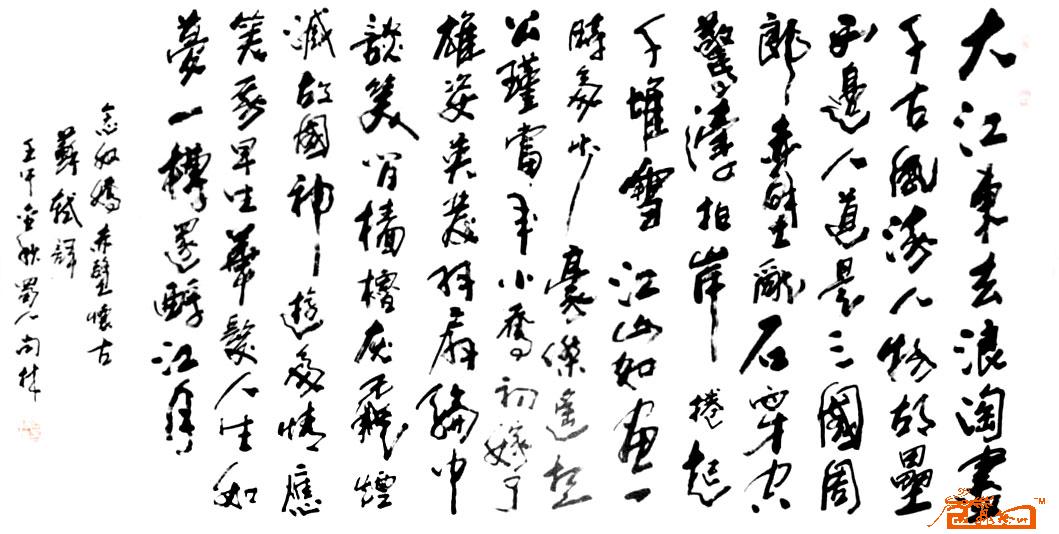 大江東去浪淘盡
千古風流人物故壘
西邊人道是三國周
郎赤壁亂石穿空
驚濤拍岸捲起
千堆雪江山如畫一
時多少豪傑遙想
公瑾當年小喬初嫁了
雄姿英發羽扇綸巾
談笑間檣櫓灰飛煙
滅故國神遊多情應
笑我早生華髮人生如
夢一樽還酹江月
念奴嬌赤壁懷古
蘇軾詞
壬午金秋蜀人